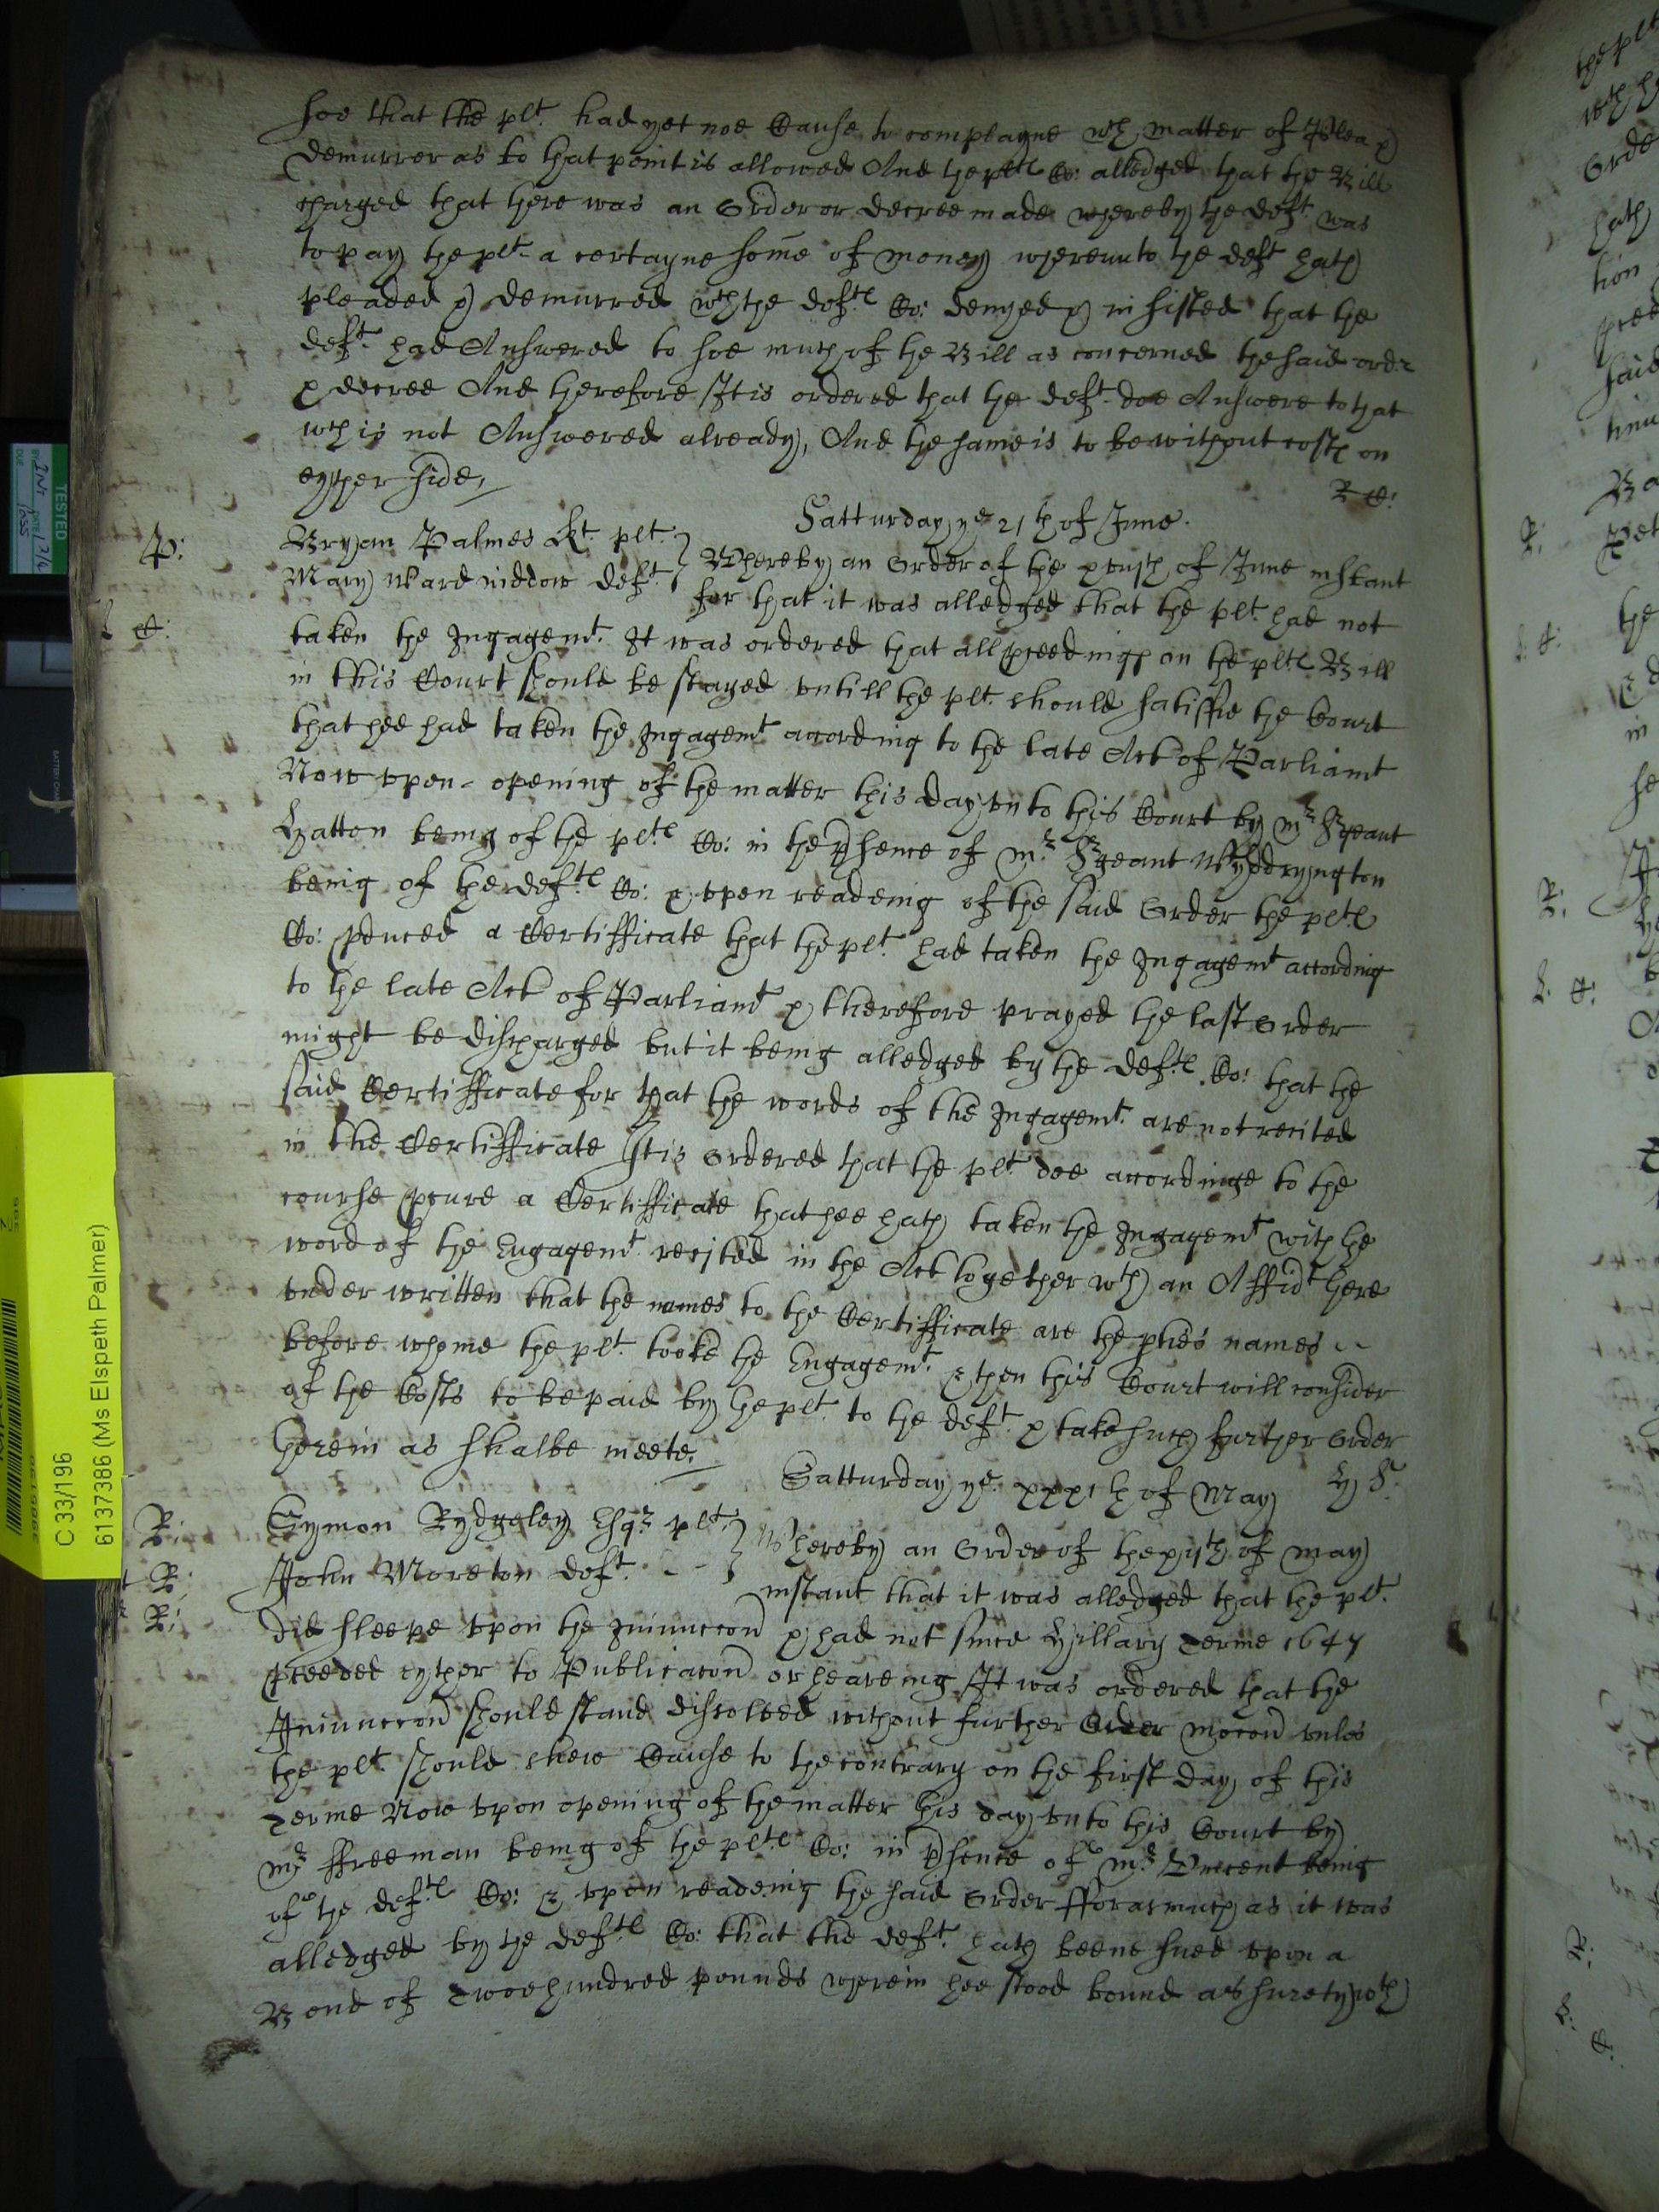 soe that the plt. had yet noe Cause to complayne wch matter of Plea &
demurrer as to that point is allowed And the pltes Co: alledged that the Bill
charged that there was an Order or decree made whereby the deft. was
to pay the plt. a certayne some of money whereunto the deft hath
pleaded & demurred wch the deftes Co: denyed & insisted that the
deft. had Answered to soe much of the Bill as concerned the said ordr
& decree And therefore It is ordered that the deft. doe Answere to that
wch is not Answered already, And the same is to be without costes on
eyther side,
R C:
Satturday ye 21th of June.
P: Bryan Palmes Kt. plt.
Mary Ward widdow deft.
Whereby an Order of the xviijth of June instant
for that it was alledged that the plt. had not
taken the Ingagemt. It was ordered that all pceedinges on the pltes Bill
in this Court should be stayed vntill the plt. should satisfie the Court
that hee had taken the Ingagemt according to the late Act of Parliamt
Now vpon opening of the matter this day vnto this Court by mr Srgeant
Hatton being of the pltes Co: in the psence of mr Srgeant Wyddryngton
being of the deftes Co: & vpon readeing of the said Order the pltes
Co: pduced a Certifficate that the plt. had taken the Ingagemt according
to the late Act of Parliamt & therefore prayed the last Order
might be discharged but it being alledged by the deftes Co: that the
said Certifficate for that the words of the Ingagemt. are not recited
in the Certifficate It is Ordered that the plt doe accordinge to the
course pcure a Certifficate that hee hath taken the Ingagemt with the
word of the Engagemt. recited in the Act together wth an Affidt there
vnder written that the names to the Certifficate are the pties names
before whome the plt. tooke the Engagemt. & then this Court will consider
of the Costs to be paid by the plt. to the deft. & take such further Order
therein as shalbe meete.
Satturday ye. xxxith of May
Symon Rydgeley Esqr plt.
John Moreton deft.
Whereby an Order of the xijth of may
instant that it was alledged that the plt.
did sleepe vpon the Iniunccon & had not since Hillary Terme 1647
pceeded eyther to Publicacon or heareing It was ordered that the
Iniunccon should stand dissolved without further Order mocon vnles
the plt. should shew Cause to the contrary on the first day of this
Terme Now vpon opening of the matter this day vnto this Court by
mr ffreeman being of the pltes Co: in psence of mr Vincent being
of the deftes Co: & vpon readeing the said Order fforasmuch as it was
alledged by the deftes Co: that the deft. hath beene sued vpon a
Bond of Twoe hundred pounds wherein hee stood bound as surety wth
C 33/196
6137386 (Ms Elspeth Palmer)
TESTED